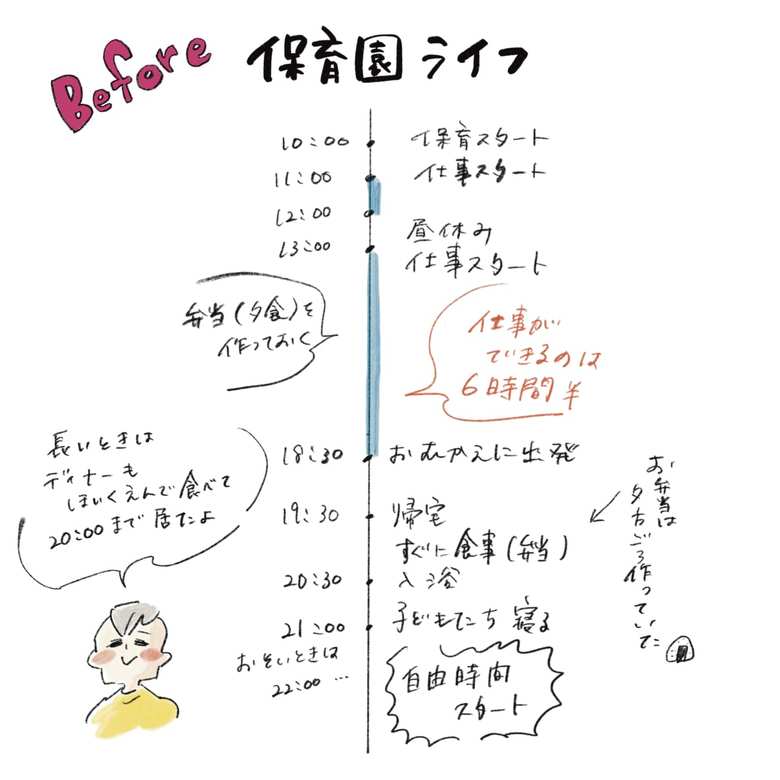 Before 保育園ライフ
10:00 保育スタート
11:00 仕事スタート
12:00 昼休み
13:00 仕事スタート
弁当(夕食)を
作っておく
仕事が
できるのは
6時間半
18:30 おむかえに出発
長いときは
ディナーも
ほいくえんで食べて
20:00まで居たよ
19:30 帰宅
すぐに食事(弁当)
20:30 入浴
お弁当は
夕方ごろ作っていた
21:00 子どもたち寝る
おそいときは
22:00 …
自由時間
スタート